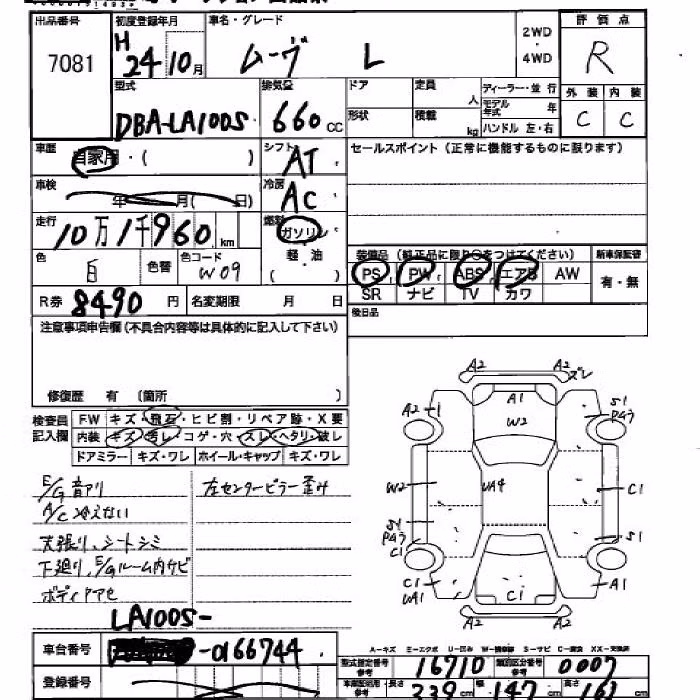 出品番号 初度登録年月 車名・グレード 2WD ・ 4WD 評価点
7081 H 24 10月 ムーヴ L R
型式 排気量 ドア 定員 人 ディーラー・並行 外装 内装
DBA-LA100S 660 cc 形状 積載 kg モデル年式 年 ハンドル 左・右 C C
車歴 自家用・( ) シフト AT セールスポイント(正常に機能するものに限ります)
車検 年 月( 日) 冷房 AC
走行 10万1千960 km 燃料 ガソリン
装備品(純正品に限り○をつけてください) 新車保証書
色 白 色替 色コード W09 軽・油 ( )
PS PW ABS エアB AW 有・無
SR ナビ TV カワ
R券 8490 円 名変期限 月 日
後日品
注意事項申告欄(不具合内容等は具体的に記入して下さい)
修復歴 有 (箇所 )
検査員記入欄 FW キズ・飛石・ヒビ割・リペア跡・X要
内装 キズ・汚レ・コゲ・穴・スレ・ヘタリ・破レ
ドアミラー キズ・ワレ ホイール・キャップ キズ・ワレ
E/G音アリ 左センターピラー歪み
A/C冷えない
天張り、シートシミ
下廻り、E/Gルーム内サビ
ボディアセ
A2 A2 ズレ
A1
W2
A2 S1 Pタウ
W2 UA4 C1
S1 Pタウ C1 S1
C1 UA1 C1 A1
A2 A2
LA100S-
車台番号 -0166744
A-キズ E-エクボ U-凹み W-補修跡 S-サビ C-腐食 XX-交換済
登録番号 型式指定番号 参考 16710 類別区分番号 参考 0007
長さ 339 cm 幅 147 cm 高さ cm